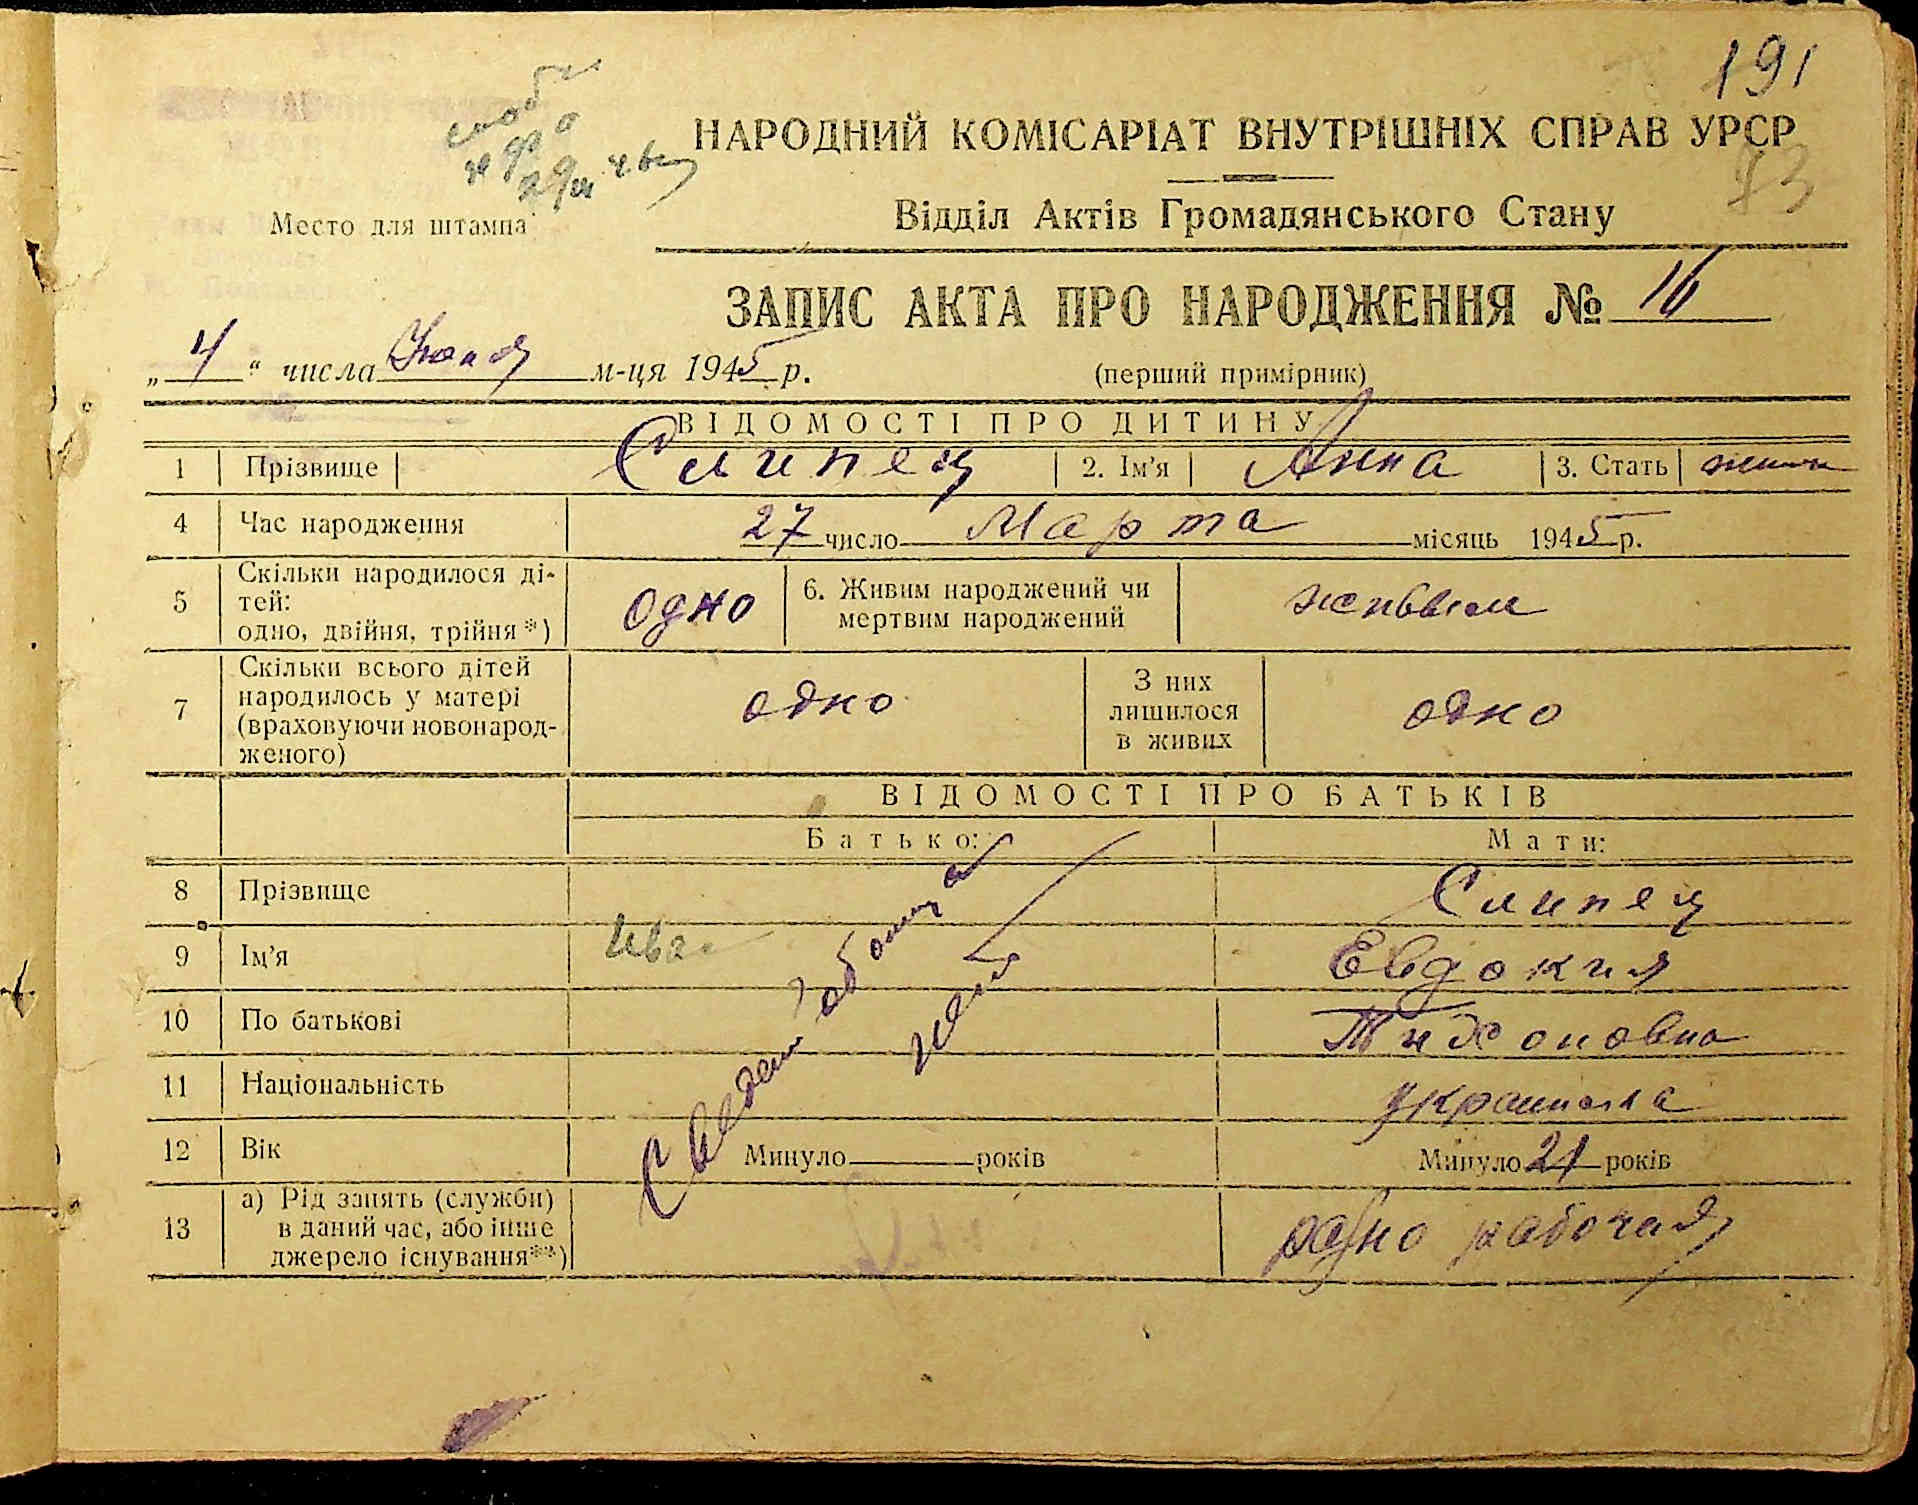 191
НАРОДНИЙ КОМІСАРІАТ ВНУТРІШНІХ СПРАВ УРСР
83
Место для штампа
Відділ Актів Громадянського Стану
ЗАПИС АКТА ПРО НАРОДЖЕННЯ № 16
„ 4 “ числа м-ця 1945 р.
(перший примірник)
ВІДОМОСТІ ПРО ДИТИНУ
1 Прізвище Слипец 2. Ім'я Анна 3. Стать
4 Час народження 27 число Марта місяць 1945 р.
5 Скільки народилося ді-
тей:
одно, двійня, трійня*)
одно
6. Живим народжений чи
мертвим народжений
живым
7 Скільки всього дітей
народилось у матері
(враховуючи новонарод-
женого)
одно
З них
лишилося
в живих
одно
ВІДОМОСТІ ПРО БАТЬКІВ
Батько: Мати:
8 Прізвище Слипец
9 Ім'я Ива Евдокия
10 По батькові Тихоновна
11 Національність украинка
12 Вік Минуло років Минуло 21 років
13 а) Рід занять (служби)
в даний час, або інше
джерело існування**)
рабочая